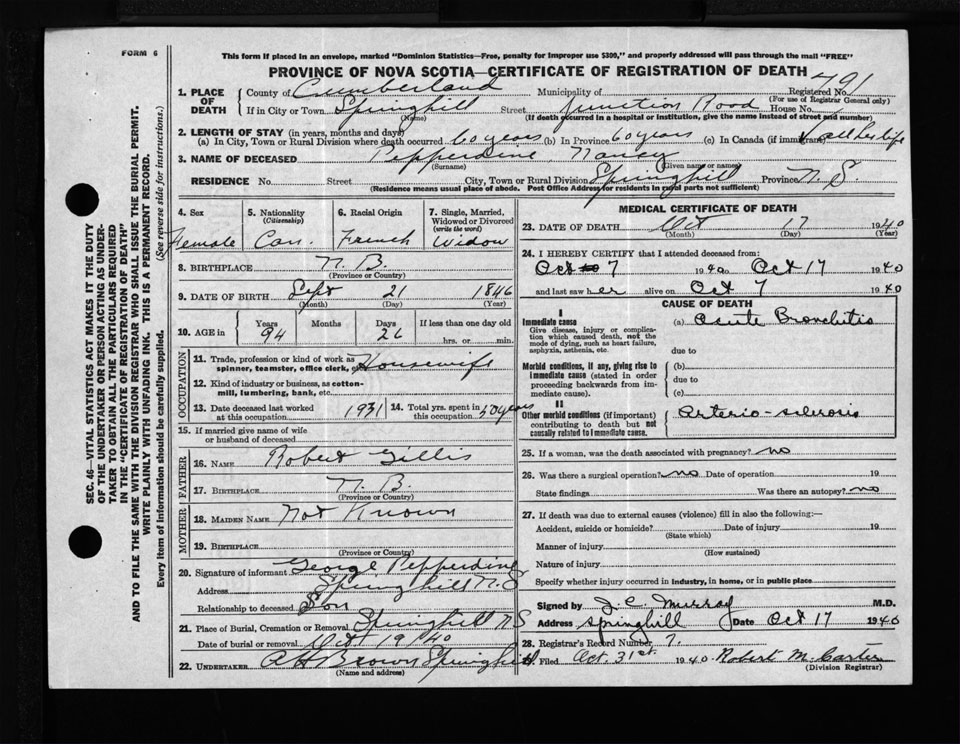 FORM 6
This form if placed in an envelope, marked "Dominion Statistics—Free, penalty for improper use $300," and properly addressed will pass through the mail "FREE"
PROVINCE OF NOVA SCOTIA—CERTIFICATE OF REGISTRATION OF DEATH
1. PLACE OF DEATH County of Cumberland Municipality of Registered No. 791
(For use of Registrar General only)
If in City or Town Springhill Street Junction Road House No.
(Name) (If death occurred in a hospital or institution, give the name instead of street and number)
2. LENGTH OF STAY (in years, months and days)
(a) In City, Town or Rural Division where death occurred 60 years (b) In Province 60 years (c) In Canada (if immigrant) all her life
3. NAME OF DECEASED Pepperdine, Nancy
(Surname) (Given name or names)
RESIDENCE No. Street City, Town or Rural Division Springhill Province N. S.
(Residence means usual place of abode. Post Office Address for residents in rural parts not sufficient)
4. Sex 5. Nationality (Citizenship) 6. Racial Origin 7. Single, Married, Widowed or Divorced (write the word)
Female Can. French Widow
8. BIRTHPLACE N. B.
(Province or Country)
9. DATE OF BIRTH Sept 21 1846
(Month) (Day) (Year)
10. AGE in Years Months Days If less than one day old
94 26 hrs. or min.
OCCUPATION
11. Trade, profession or kind of work as spinner, teamster, office clerk, etc. Housewife
12. Kind of industry or business, as cotton-mill, lumbering, bank, etc.
13. Date deceased last worked at this occupation 1931 14. Total yrs. spent in this occupation 50 years
15. If married give name of wife or husband of deceased
FATHER
16. NAME Robert Gillis
17. BIRTHPLACE N. B.
(Province or Country)
MOTHER
18. MAIDEN NAME Not Known
19. BIRTHPLACE
(Province or Country)
20. Signature of informant George Pepperdine
Address Springhill N. S
Relationship to deceased Son
21. Place of Burial, Cremation or Removal Springhill N S
Date of burial or removal Oct 19/40
22. UNDERTAKER A H Brown Springhill
(Name and address)
MEDICAL CERTIFICATE OF DEATH
23. DATE OF DEATH Oct 17 1940
(Month) (Day) (Year)
24. I HEREBY CERTIFY that I attended deceased from:
Oct 7 1940 to Oct 17 1940
and last saw her alive on Oct 7 1940
CAUSE OF DEATH
I
Immediate cause (a) Acute Bronchitis
Give disease, injury or complication which caused death, not the mode of dying, such as heart failure, asphyxia, asthenia, etc.
due to
Morbid conditions, if any, giving rise to immediate cause (stated in order proceeding backwards from immediate cause).
(b)
due to
(c)
II
Other morbid conditions (if important) contributing to death but not causally related to immediate cause. Arterio-sclerosis
25. If a woman, was the death associated with pregnancy? no
26. Was there a surgical operation? no Date of operation 19
State findings Was there an autopsy? no
27. If death was due to external causes (violence) fill in also the following:—
Accident, suicide or homicide? Date of injury 19
(State which)
Manner of injury
(How sustained)
Nature of injury
Specify whether injury occurred in industry, in home, or in public place
Signed by J. C. Murray M.D.
Address Springhill Date Oct 17 1940
28. Registrar's Record Number 7.
Filed Oct. 31st. 1940 Robert M. Carter
(Division Registrar)
SEC. 46—VITAL STATISTICS ACT MAKES IT THE DUTY
OF THE UNDERTAKER OR PERSON ACTING AS UNDER-
TAKER TO OBTAIN ALL THE PARTICULARS REQUIRED
IN THE "CERTIFICATE OF REGISTRATION OF DEATH"
AND TO FILE THE SAME WITH THE DIVISION REGISTRAR WHO SHALL ISSUE THE BURIAL PERMIT.
WRITE PLAINLY WITH UNFADING INK. THIS IS A PERMANENT RECORD.
Every item of information should be carefully supplied. (See reverse side for instructions.)